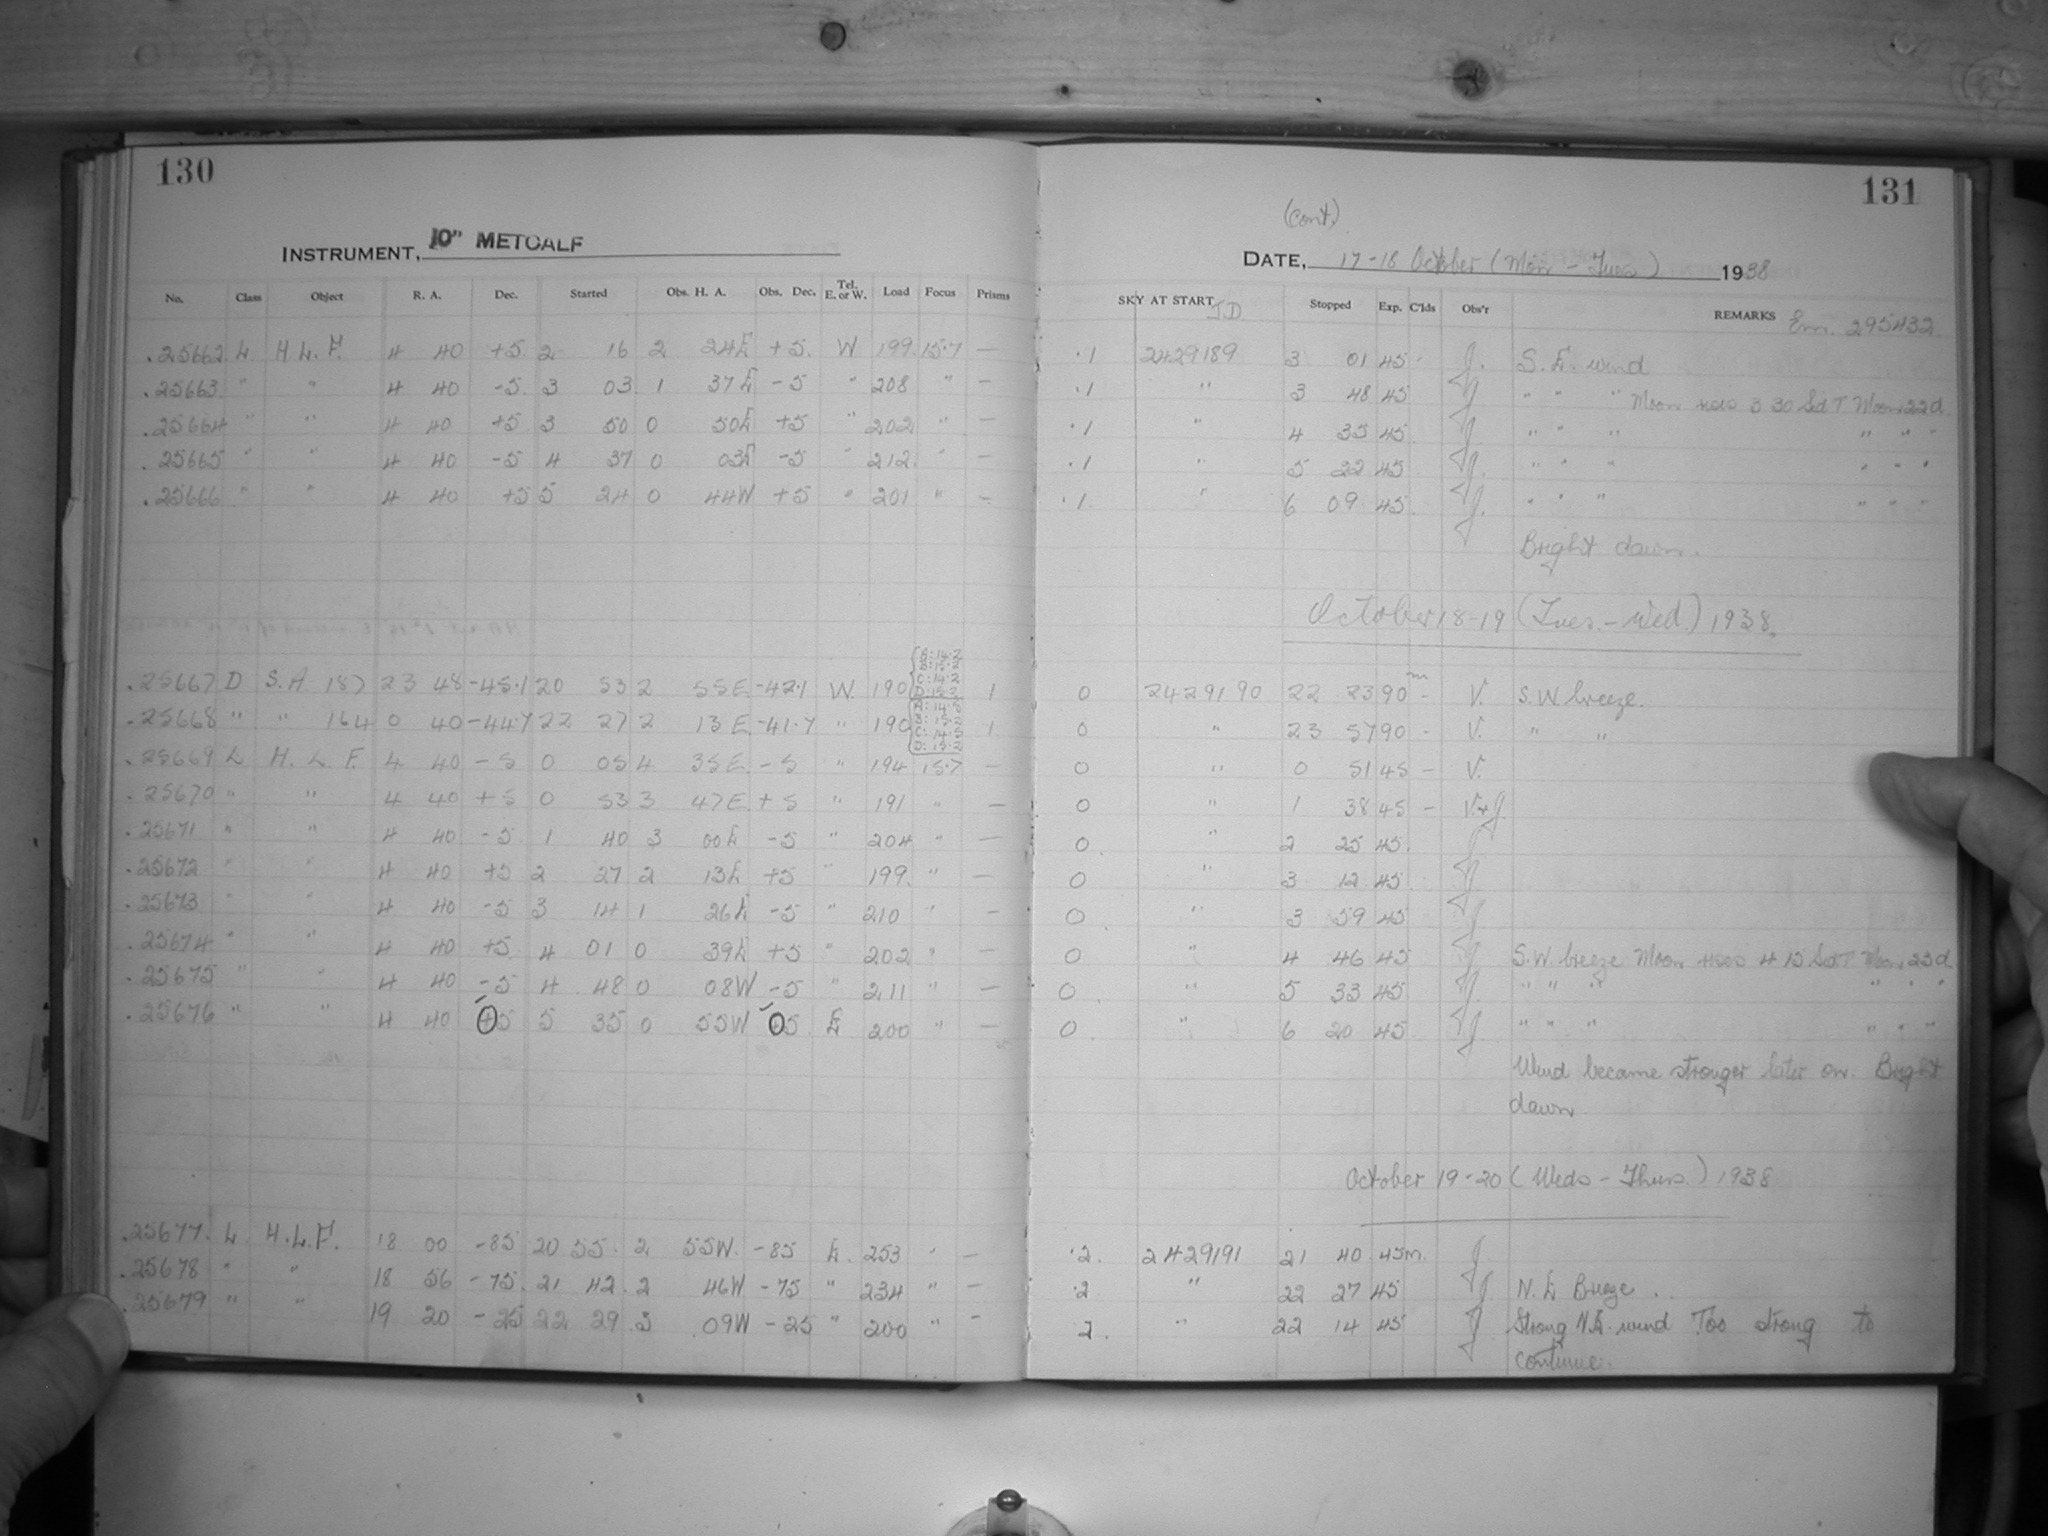 130
INSTRUMENT, 10" METCALF
No. Class Object R. A. Dec. Started Obs. H. A. Obs. Dec. Tel. E. or W. Load Focus Prisms
.25662 L. H. L. F. 4 40 +5 2 16 2 24E +5. W 199. 15.7 —
.25663. " " 4 40 -5. 3 03 1 37E -5 " 208 " —
.25664 " " 4 40 +5 3 50 0 50E +5 " 202 " —
.25665 " " 4 40 -5 4 37 0 03E -5 " 212. " —
.25666 " " 4 40 +5 5 24 0 44W +5 " 201 " —
.25667 D S.A. 187 23 48 -45.1 20 53 2 55E -42.1 W. 190 1
.25668 " " 164 0 40 -44.7 22 27 2 13E -41.7 " 190 1
.25669 L H. L F. 4 40 -5 0 05 4 35E -5 " 194 15.7 —
.25670 " " 4 40 +5 0 53 3 47E +5 " 191 " —
.25671 " " 4 40 -5 1 40 3 00E -5 " 204 " —
.25672 " " 4 40 +5 2 27 2 13E +5 " 199. " —
.25673 " " 4 40 -5 3 14 1 26E -5 " 210 " —
.25674 " " 4 40 +5 4 01 0 39E +5 " 202 " —
.25675 " " 4 40 -5 4 48 0 08W -5 " 211 " —
.25676 " " 4 40 +5 5 35 0 55W 5. E 200 " —
.25677. L. H.L.F. 18 00 -85 20 55. 2 55W. -85 E. 253 " —
.25678 " " 18 56 -75. 21 42. 2 46W -75 " 234 " —
.25679 " " 19 20 -25 22 29 3 09W -25 " 200 " —
131
(cont.)
DATE, 17-18 October (Mon - Tues) 1938
SKY AT START J.D. Stopped Exp. C'lds Obs'r REMARKS Em. 295432
.1 2429189 3 01 45 J. S. E. wind
.1 " 3 48 45 J " " " Moon rises 3 30 Sid T Moon 22d
.1 " 4 35 45 J. " " " " " "
.1 " 5 22 45 J. " " " " " "
.1 " 6 09 45 J. " " " " " "
Bright dawn.
October 18-19 (Tues. - Wed.) 1938.
0 2429190 22 23 90m - V. S.W. breeze.
0 " 23 57 90 - V. " "
0 " 0 51 45 - V.
0 " 1 38 45 - V.+J.
0. " 2 25 45. J
0 " 3 12 45 J
0. " 3 59 45 J
0. " 4 46 45 J S.W. breeze Moon rises 4 15 Sid T Moon 23d
0. " 5 33 45 J. " " " " " "
0. " 6 20 45. J " " " " " "
Wind became stronger later on. Bright
dawn
October 19-20 (Weds - Thurs.) 1938
.2. 2429191 21 40 45m. J
.2 " 22 27 45 J. N. E Breeze.
.2. " 22 14 45 J Strong N.E. wind Too strong to
continue.